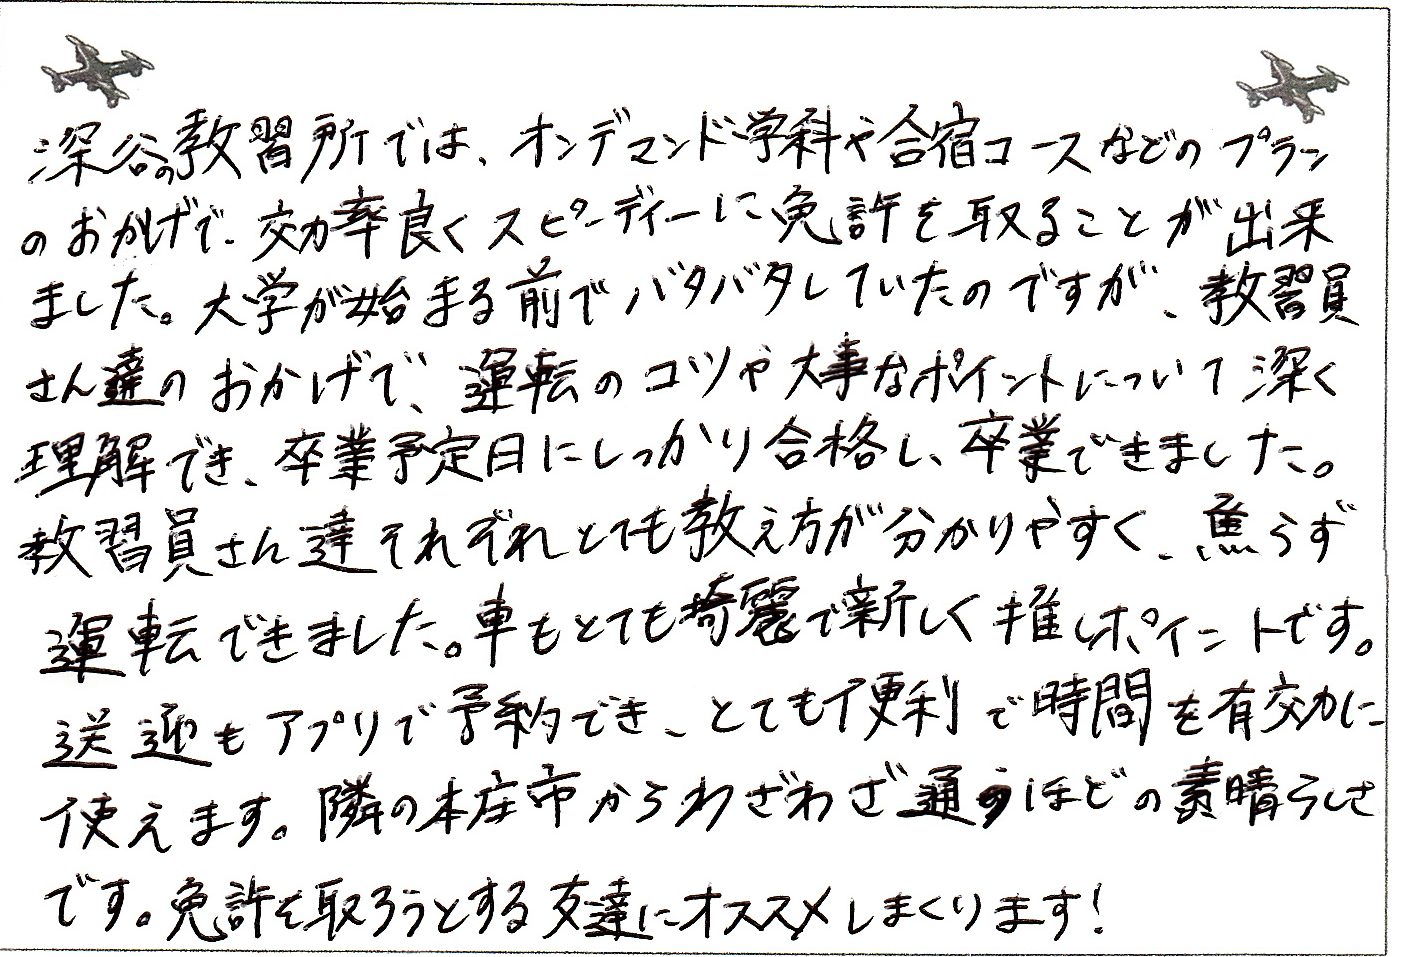 深谷の教習所では、オンデマンド学科や合宿コースなどのプラン
のおかげで、効率良くスピーディーに免許を取ることが出来
ました。大学が始まる前でバタバタしていたのですが、教習員
さん達のおかげで、運転のコツや大事なポイントについて深く
理解でき、卒業予定日にしっかり合格し、卒業できました。
教習員さん達それぞれとても教え方が分かりやすく、焦らず
運転できました。車もとても綺麗で新しく推しポイントです。
送迎もアプリで予約でき、とても便利で時間を有効に
使えます。隣の本庄市からわざわざ通うほどの素晴らしさ
です。免許を取ろうとする友達にオススメしまくります!